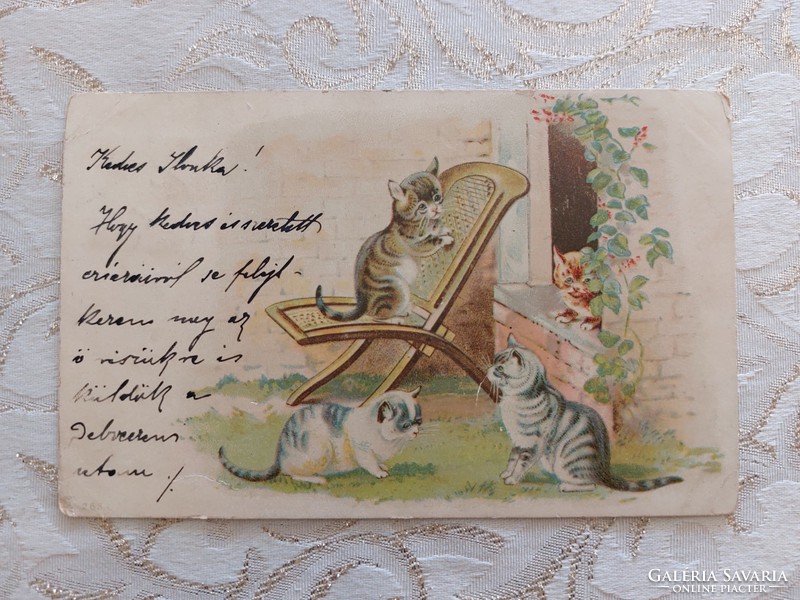 Kedves Ilonka!
Hogy kedves és szeretett
se felejt-
kezem meg az
ő részükre is
küldök a
Debreczeni
utam ./.
GALERIA SAVARIA
ONLINE PIACTÉR